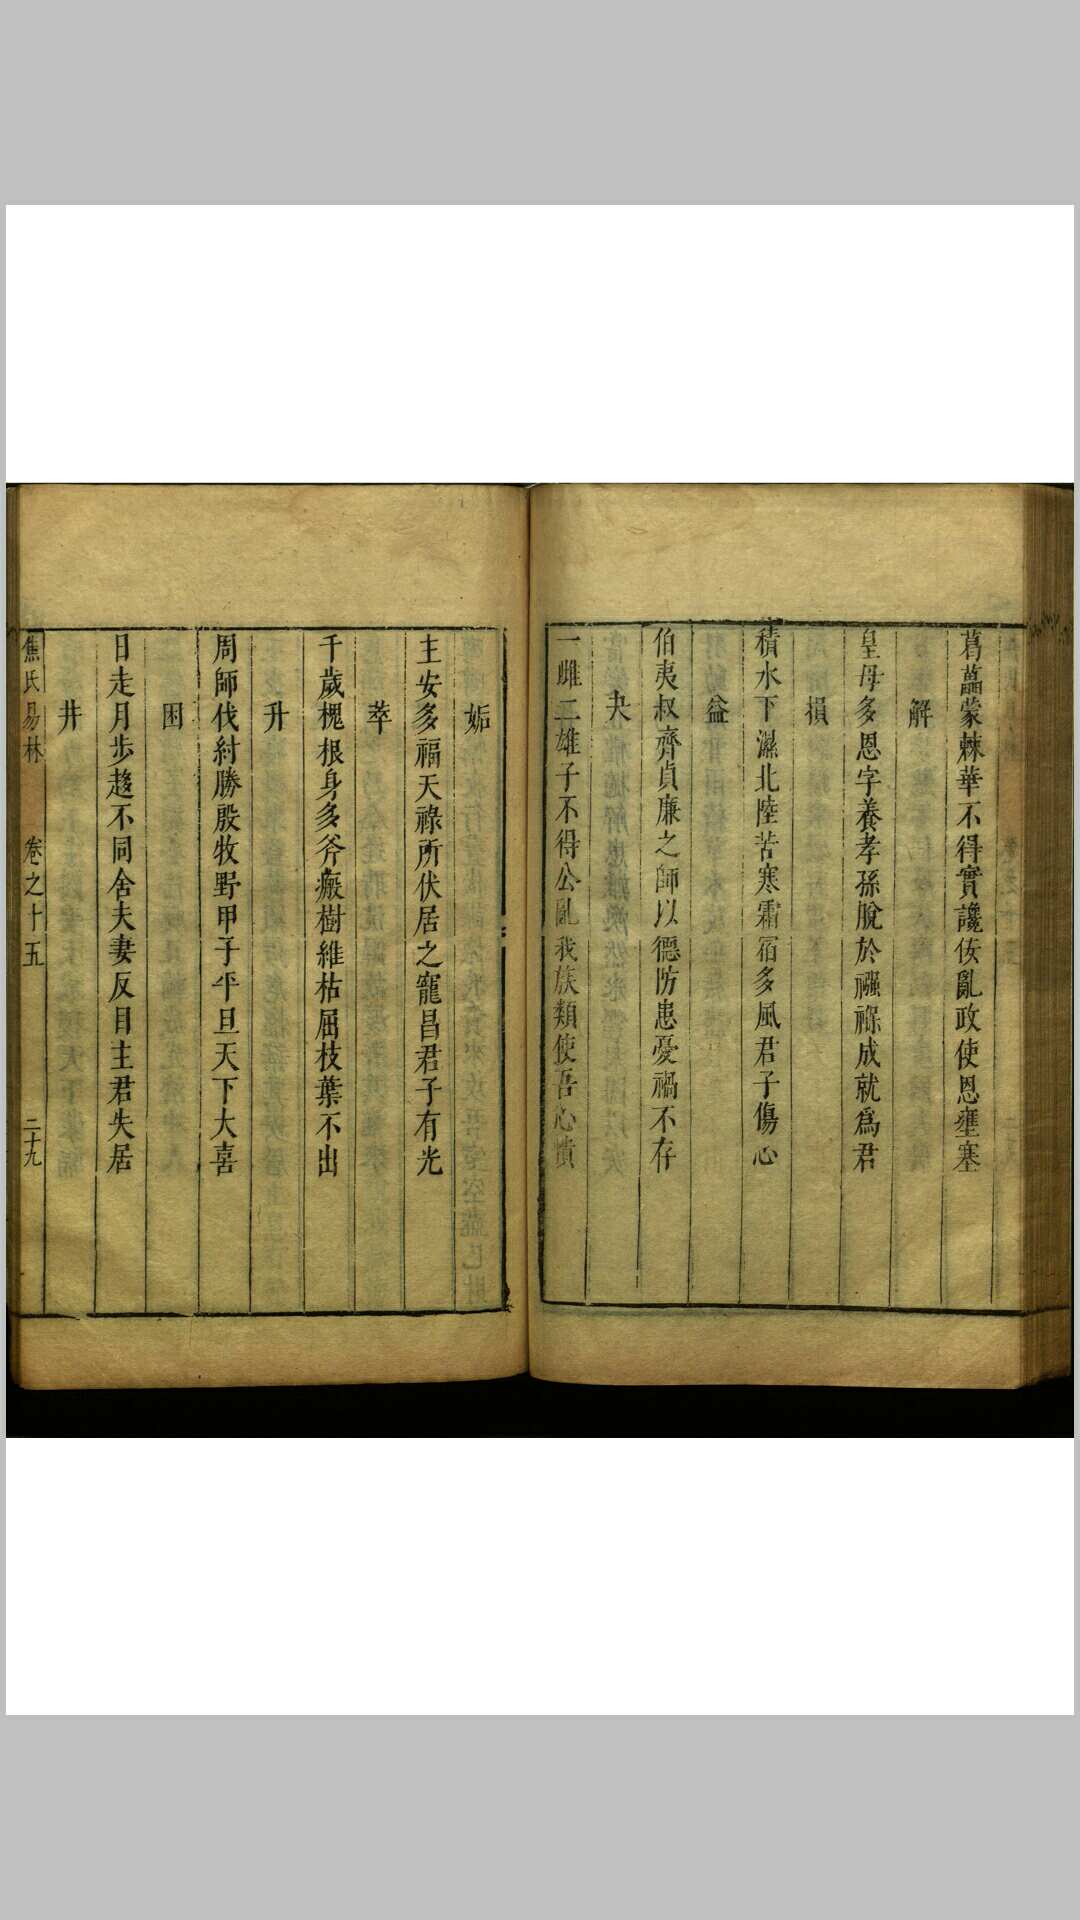 葛藟蒙棘華不得實讒佞亂政使恩壅塞
解
皇母多恩字養孝孫脫於襁褓成就為君
損
積水下濕北陸苦寒霜宿多風君子傷心
益
伯夷叔齊貞廉之師以德防患憂禍不存
夬
一雌二雄子不得公亂我族類使吾心憒
姤
主安多福天祿所伏居之寵昌君子有光
萃
千歲槐根身多斧瘢樹維枯屈枝葉不出
升
周師伐紂勝殷牧野甲子平旦天下大喜
困
日走月步趍不同舍夫妻反目主君失居
井
焦氏易林 卷之十五 二十九